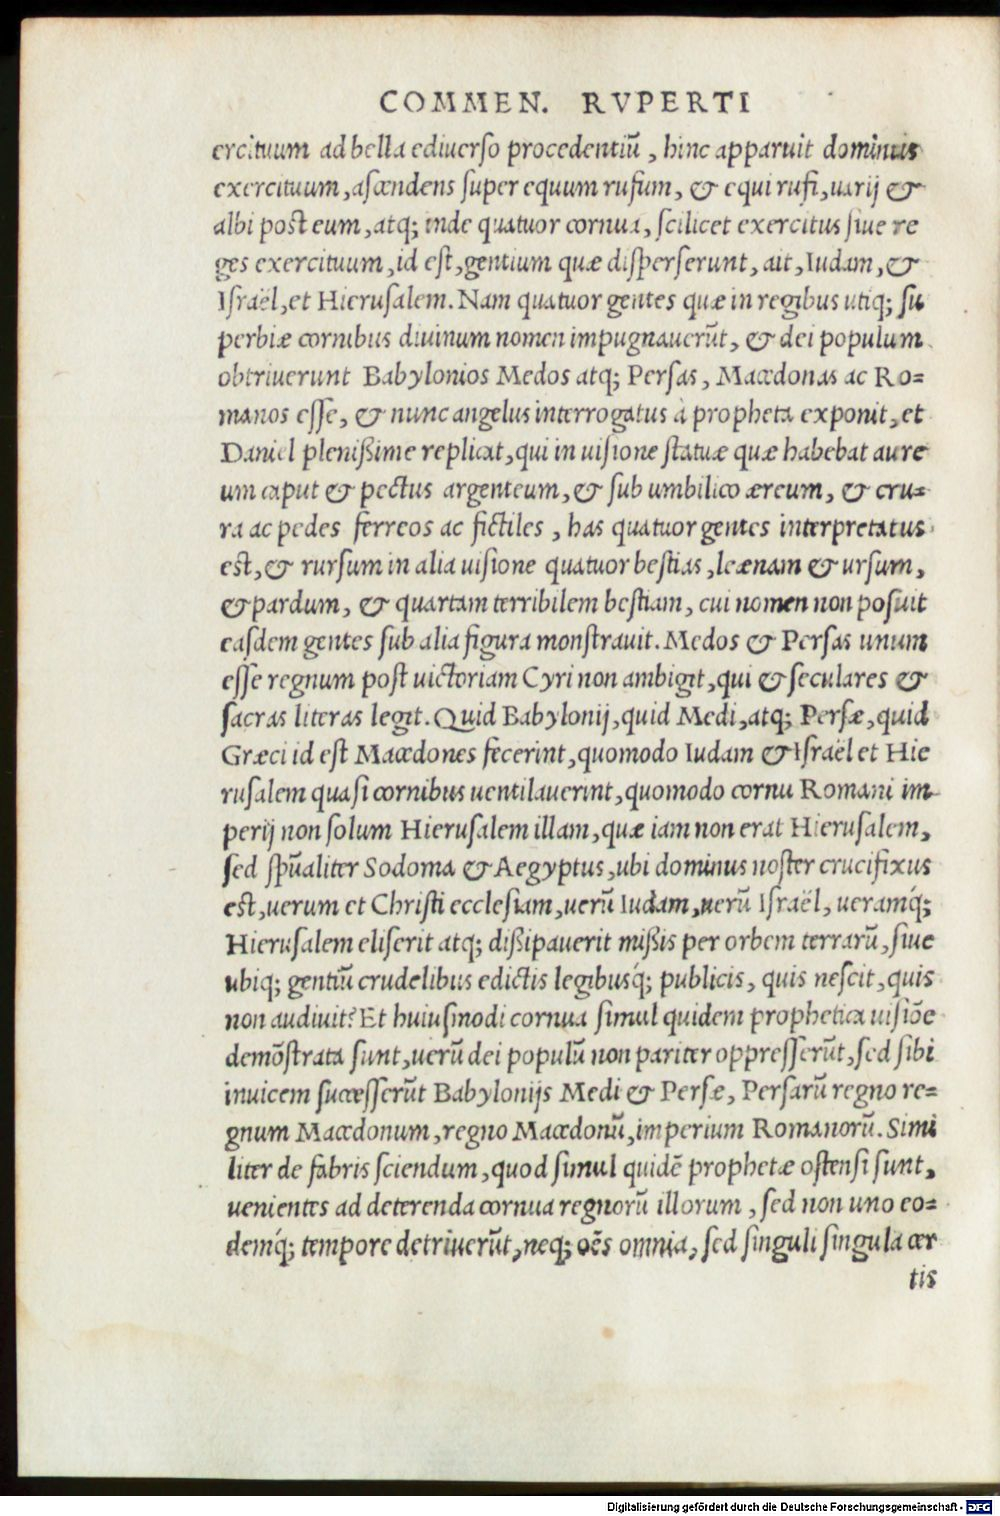 COMMEN. RVPERTI
ercituum ad bella ediuerso procedentiū, hinc apparuit dominus
exercituum, ascendens super equum rufum, & equi rufi, uarij &
albi post eum, atq; inde quatuor cornua, scilicet exercitus siue re
ges exercituum, id est, gentium quæ disperserunt, ait, Iudam, &
Israël, et Hierusalem. Nam quatuor gentes quæ in regibus utiq; su
perbiæ cornibus diuinum nomen impugnauerūt, & dei populum
obtriuerunt Babylonios Medos atq; Persas, Macedonas ac Ro=
manos esse, & nunc angelus interrogatus à propheta exponit, et
Daniel plenißime replicat, qui in uisione statuæ quæ habebat aure
um caput & pectus argenteum, & sub umbilico æreum, & cru=
ra ac pedes ferreos ac fictiles, has quatuor gentes interpretatus
est, & rursum in alia uisione quatuor bestias, leænam & ursum,
& pardum, & quartam terribilem bestiam, cui nomen non posuit
easdem gentes sub alia figura monstrauit. Medos & Persas unum
esse regnum post uictoriam Cyri non ambigit, qui & seculares &
sacras literas legit. Quid Babylonij, quid Medi, atq; Persæ, quid
Græci id est Macedones fecerint, quomodo Iudam & Israël et Hie
rusalem quasi cornibus uentilauerint, quomodo cornu Romani im-
perij non solum Hierusalem illam, quæ iam non erat Hierusalem,
sed spūaliter Sodoma & Aegyptus, ubi dominus noster crucifixus
est, uerum et Christi ecclesiam, uerū Iudam, uerū Israël, ueramq́;
Hierusalem eliserit atq; dißipauerit mißis per orbem terrarū, siue
ubiq; gentiū crudelibus edictis legibusq́; publicis, quis nescit, quis
non audiuit? Et huiusmodi cornua simul quidem prophetica uisiõe
demõstrata sunt, uerū dei populū non pariter oppresserūt, sed sibi
inuicem successerūt Babylonijs Medi & Persæ, Persarū regno re=
gnum Macedonum, regno Macedonū, imperium Romanorū. Simi
liter de fabris sciendum, quod simul quidē prophetæ ostensi sunt,
uenientes ad deterenda cornua regnorū illorum, sed non uno eo=
demq́; tempore detriuerūt, neq; oēs omnia, sed singuli singula cer
tis
Digitalisierung gefördert durch die Deutsche Forschungsgemeinschaft - DFG